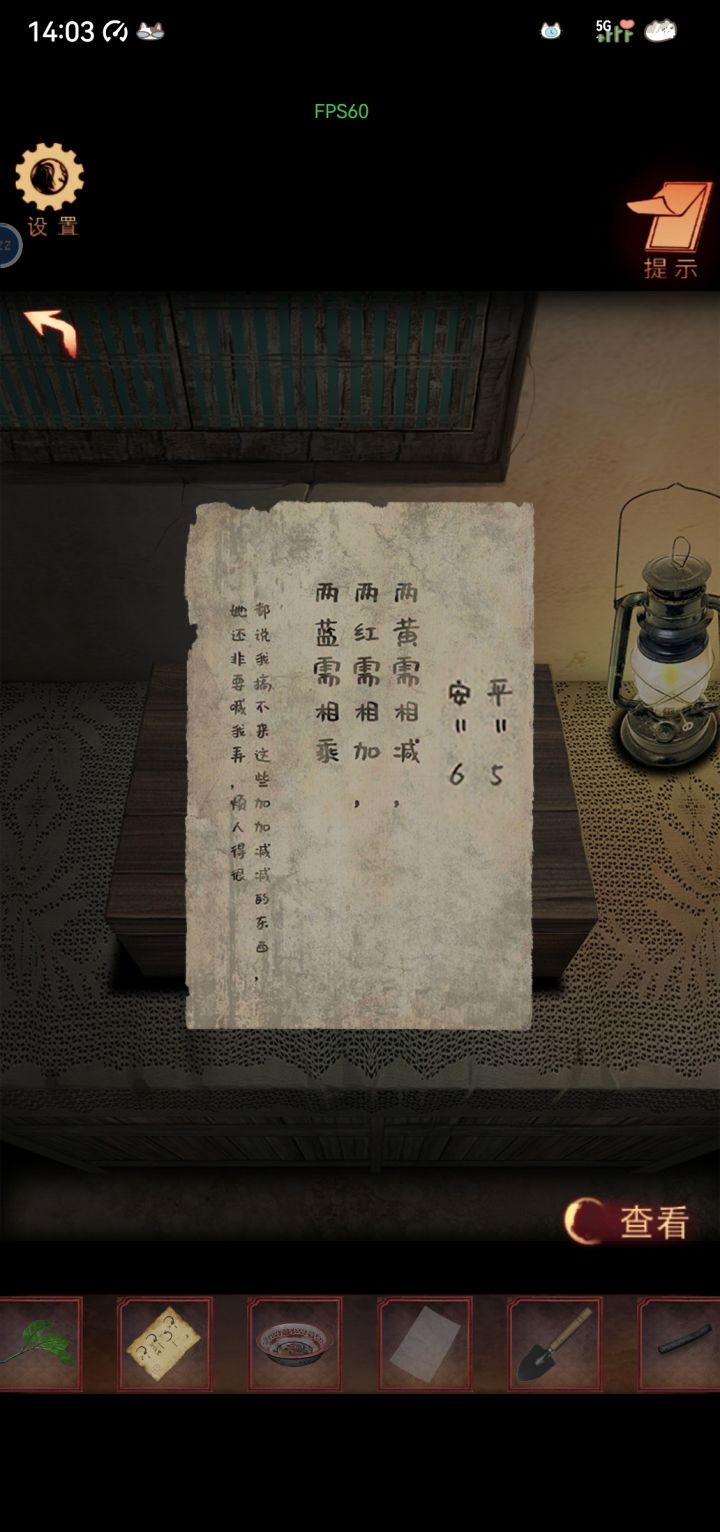 14:03
5G
FPS60
设置
22
提示
平=5
安=6
两黄需相减，
两红需相加，
两蓝需相乘
都说我搞不来这些加加减减的东西，
她还非要喊我弄，烦人得很
查看